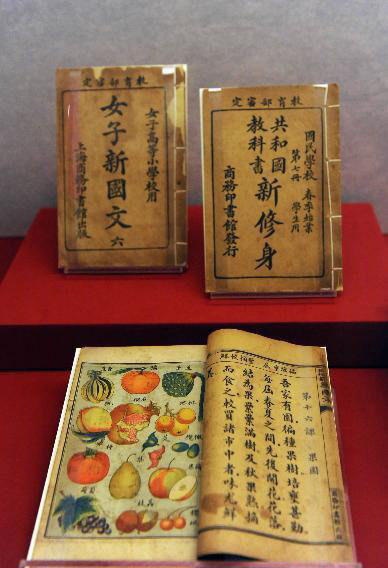 教育部審定
女子高等小學校用
女子新國文 六
上海商務印書館出版
教育部審定
國民學校 春季始業
第七冊 學生用
共和國
教科書
新修身
商務印書館發行
第十六課 果園
吾家有園徧種果樹培壅甚勤
每屆春夏之間先後開花花落
結為果纍纍滿樹及秋果熟摘
而食之較買諸市中者味尤鮮
美